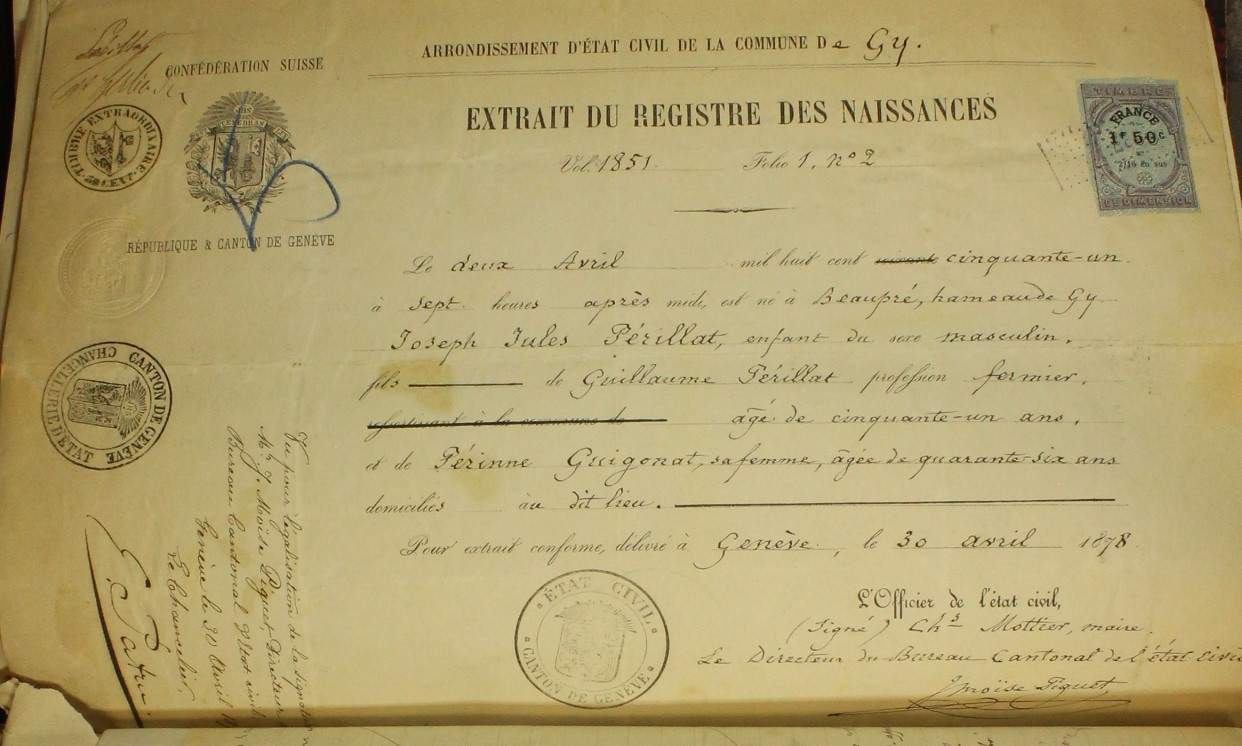 ARRONDISSEMENT D'ÉTAT CIVIL DE LA COMMUNE De Gy.
CONFÉDÉRATION SUISSE
TIMBRE EXTRAORDINAIRE
RÉPUBLIQUE & CANTON DE GENÈVE
EXTRAIT DU REGISTRE DES NAISSANCES
Vol. 1851. Folio 1, nº 2
TIMBRE
FRANCE
1F 50c
2/10 en sus
DE DIMENSION
Le deux Avril mil huit cent cinquante-un
à sept heures après midi, est né à Beaupré, hameau de Gy
Joseph Jules Périllat, enfant du sexe masculin,
fils de Guillaume Périllat profession fermier,
ressortissant à la commune de âgé de cinquante-un ans,
et de Périnne Guigonat, sa femme, âgée de quarante-six ans
domiciliés au dit lieu.
Pour extrait conforme, délivré à Genève, le 30 avril 1878
L'Officier de l'état civil,
(Signé) Chs Mottier, maire.
Le Directeur du Bureau Cantonal de l'état civil
J Moïse Piguet
ÉTAT CIVIL
CANTON DE GENÈVE
CANTON DE GENÈVE
CHANCELLERIE D'ÉTAT
Vu pour légalisation de la signature
Mr J. Moïse Piguet, Directeur
Bureau Cantonal d'Etat civil
Genève le 30 Avril
Le Chancelier,